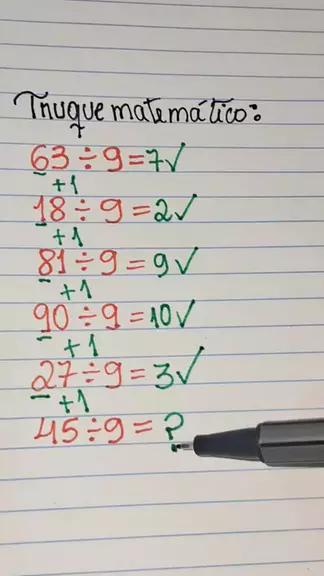 Truque matemático:
63÷9=7✓
+1
18÷9=2✓
+1
81÷9=9✓
+1
90÷9=10✓
+1
27÷9=3✓
+1
45÷9=?